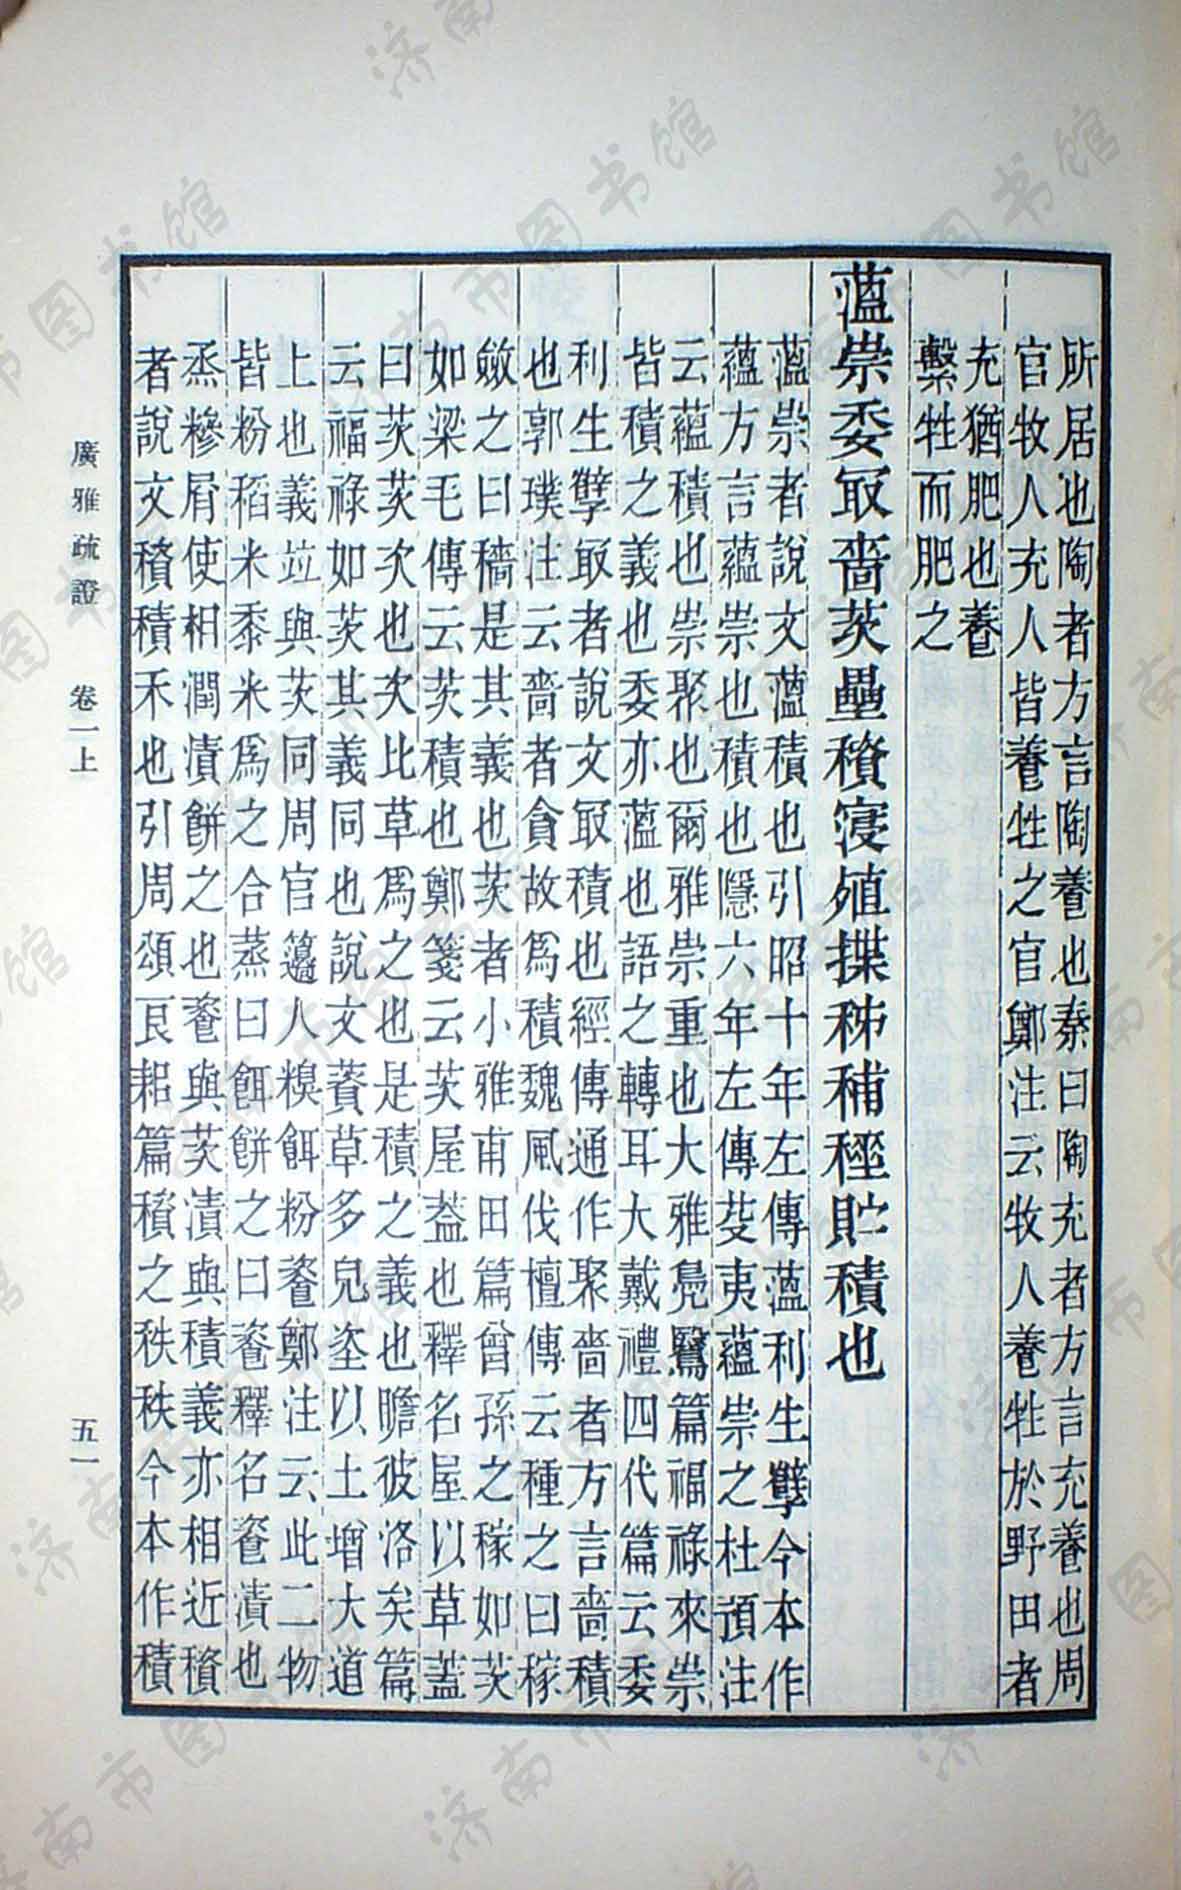 所居也陶者方言陶養也秦曰陶充者方言充養也周
官牧人充人皆養牲之官鄭注云牧人養牲於野田者
充猶肥也養
繫牲而肥之
薀崇委冣嗇茨壘䅣寖殖揲秭秿稑貯積也
薀崇者說文薀積也引昭十年左傳薀利生孽今本作
蘊方言蘊崇也積也隱六年左傳芟夷蘊崇之杜預注
云蘊積也崇聚也爾雅崇重也大雅鳧鷖篇福祿來崇
皆積之義也委亦薀也語之轉耳大戴禮四代篇云委
利生孽冣者說文冣積也經傳通作聚嗇者方言嗇積
也郭璞注云嗇者貪故為積魏風伐檀傳云種之曰稼
斂之曰穡是其義也茨者小雅甫田篇曾孫之稼如茨
如梁毛傳云茨積也鄭箋云茨屋蓋也釋名屋以草蓋
曰茨茨次也次比草為之也是積之義也瞻彼洛矣篇
云福祿如茨其義同也說文薋草多皃垐以土增大道
上也義竝與茨同周官籩人糗餌粉餈鄭注云此二物
皆粉稻米黍米為之合蒸曰餌餅之曰餈釋名餈漬也
烝糝屑使相潤漬餅之也餈與茨漬與積義亦相近䅣
者說文䅣積禾也引周頌良耜篇䅣之秩秩今本作積
廣雅疏證　卷一上　五一
济南市图书馆